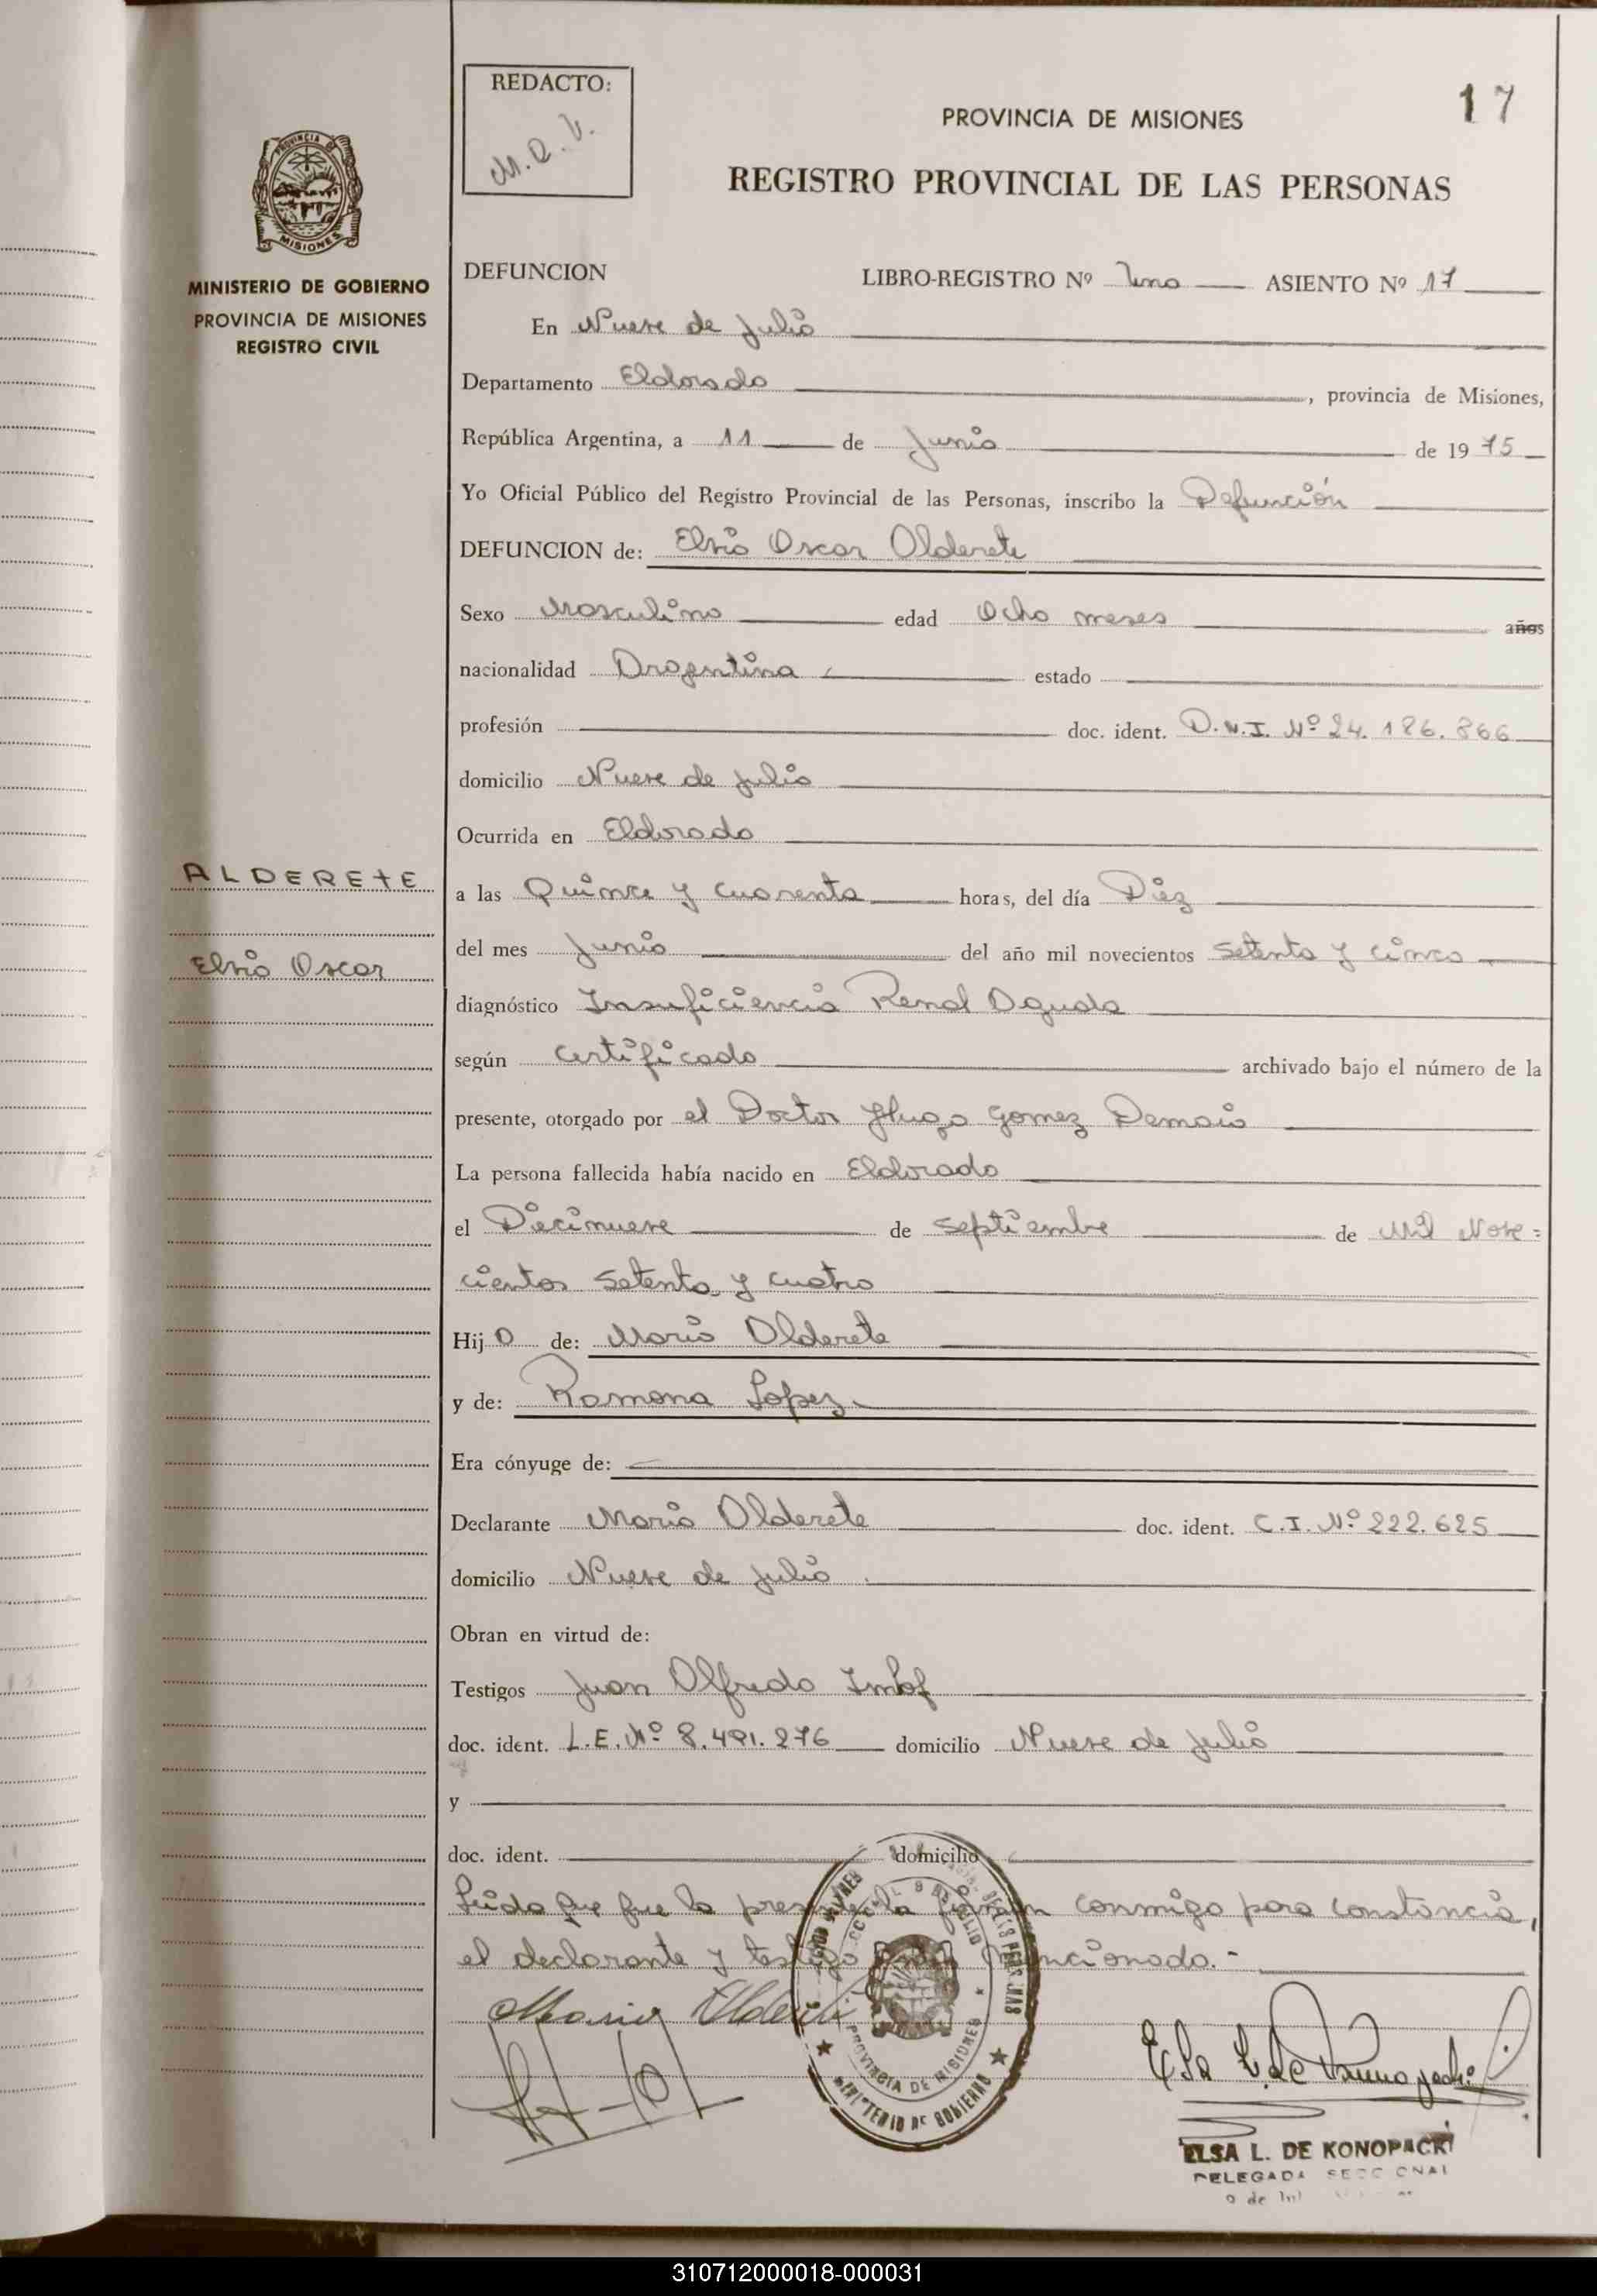 REDACTO:
M.Q.V.
17
PROVINCIA DE MISIONES
REGISTRO PROVINCIAL DE LAS PERSONAS
PROVINCIA
MISIONES
MINISTERIO DE GOBIERNO
PROVINCIA DE MISIONES
REGISTRO CIVIL
DEFUNCION LIBRO-REGISTRO Nº Uno ASIENTO Nº 17
En Nueve de Julio
Departamento Eldorado, provincia de Misiones,
República Argentina, a 11 de Junio de 1975
Yo Oficial Público del Registro Provincial de las Personas, inscribo la Defunción
DEFUNCION de: Elvio Oscar Alderete
Sexo Masculino edad Ocho meses años
nacionalidad Argentina estado
profesión doc. ident. D.N.I. Nº 24.186.866
domicilio Nueve de Julio
Ocurrida en Eldorado
ALDERETE
Elvio Oscar
a las Quince y cuarenta horas, del día Diez
del mes Junio del año mil novecientos setenta y cinco
diagnóstico Insuficiencia Renal Aguda
según certificado archivado bajo el número de la
presente, otorgado por el Doctor Hugo Gomez Demaio
La persona fallecida había nacido en Eldorado
el Diecinueve de septiembre de Mil Nove=
cientos setenta y cuatro
Hijo de: Mario Alderete
y de: Ramona Lopez
Era cónyuge de:
Declarante Mario Alderete doc. ident. C.I. Nº 222.625
domicilio Nueve de Julio
Obran en virtud de:
Testigos Juan Alfredo Imhof
doc. ident. L.E. Nº 8.491.276 domicilio Nueve de Julio
y
doc. ident. domicilio
Leída que fue la presente la firman conmigo para constancia,
el declarante y testigo mencionado.-
Mario Alderete
PROVINCIA DE MISIONES
MINISTERIO DE GOBIERNO
ELSA L. DE KONOPACKI
DELEGADA SECCIONAL
310712000018-000031